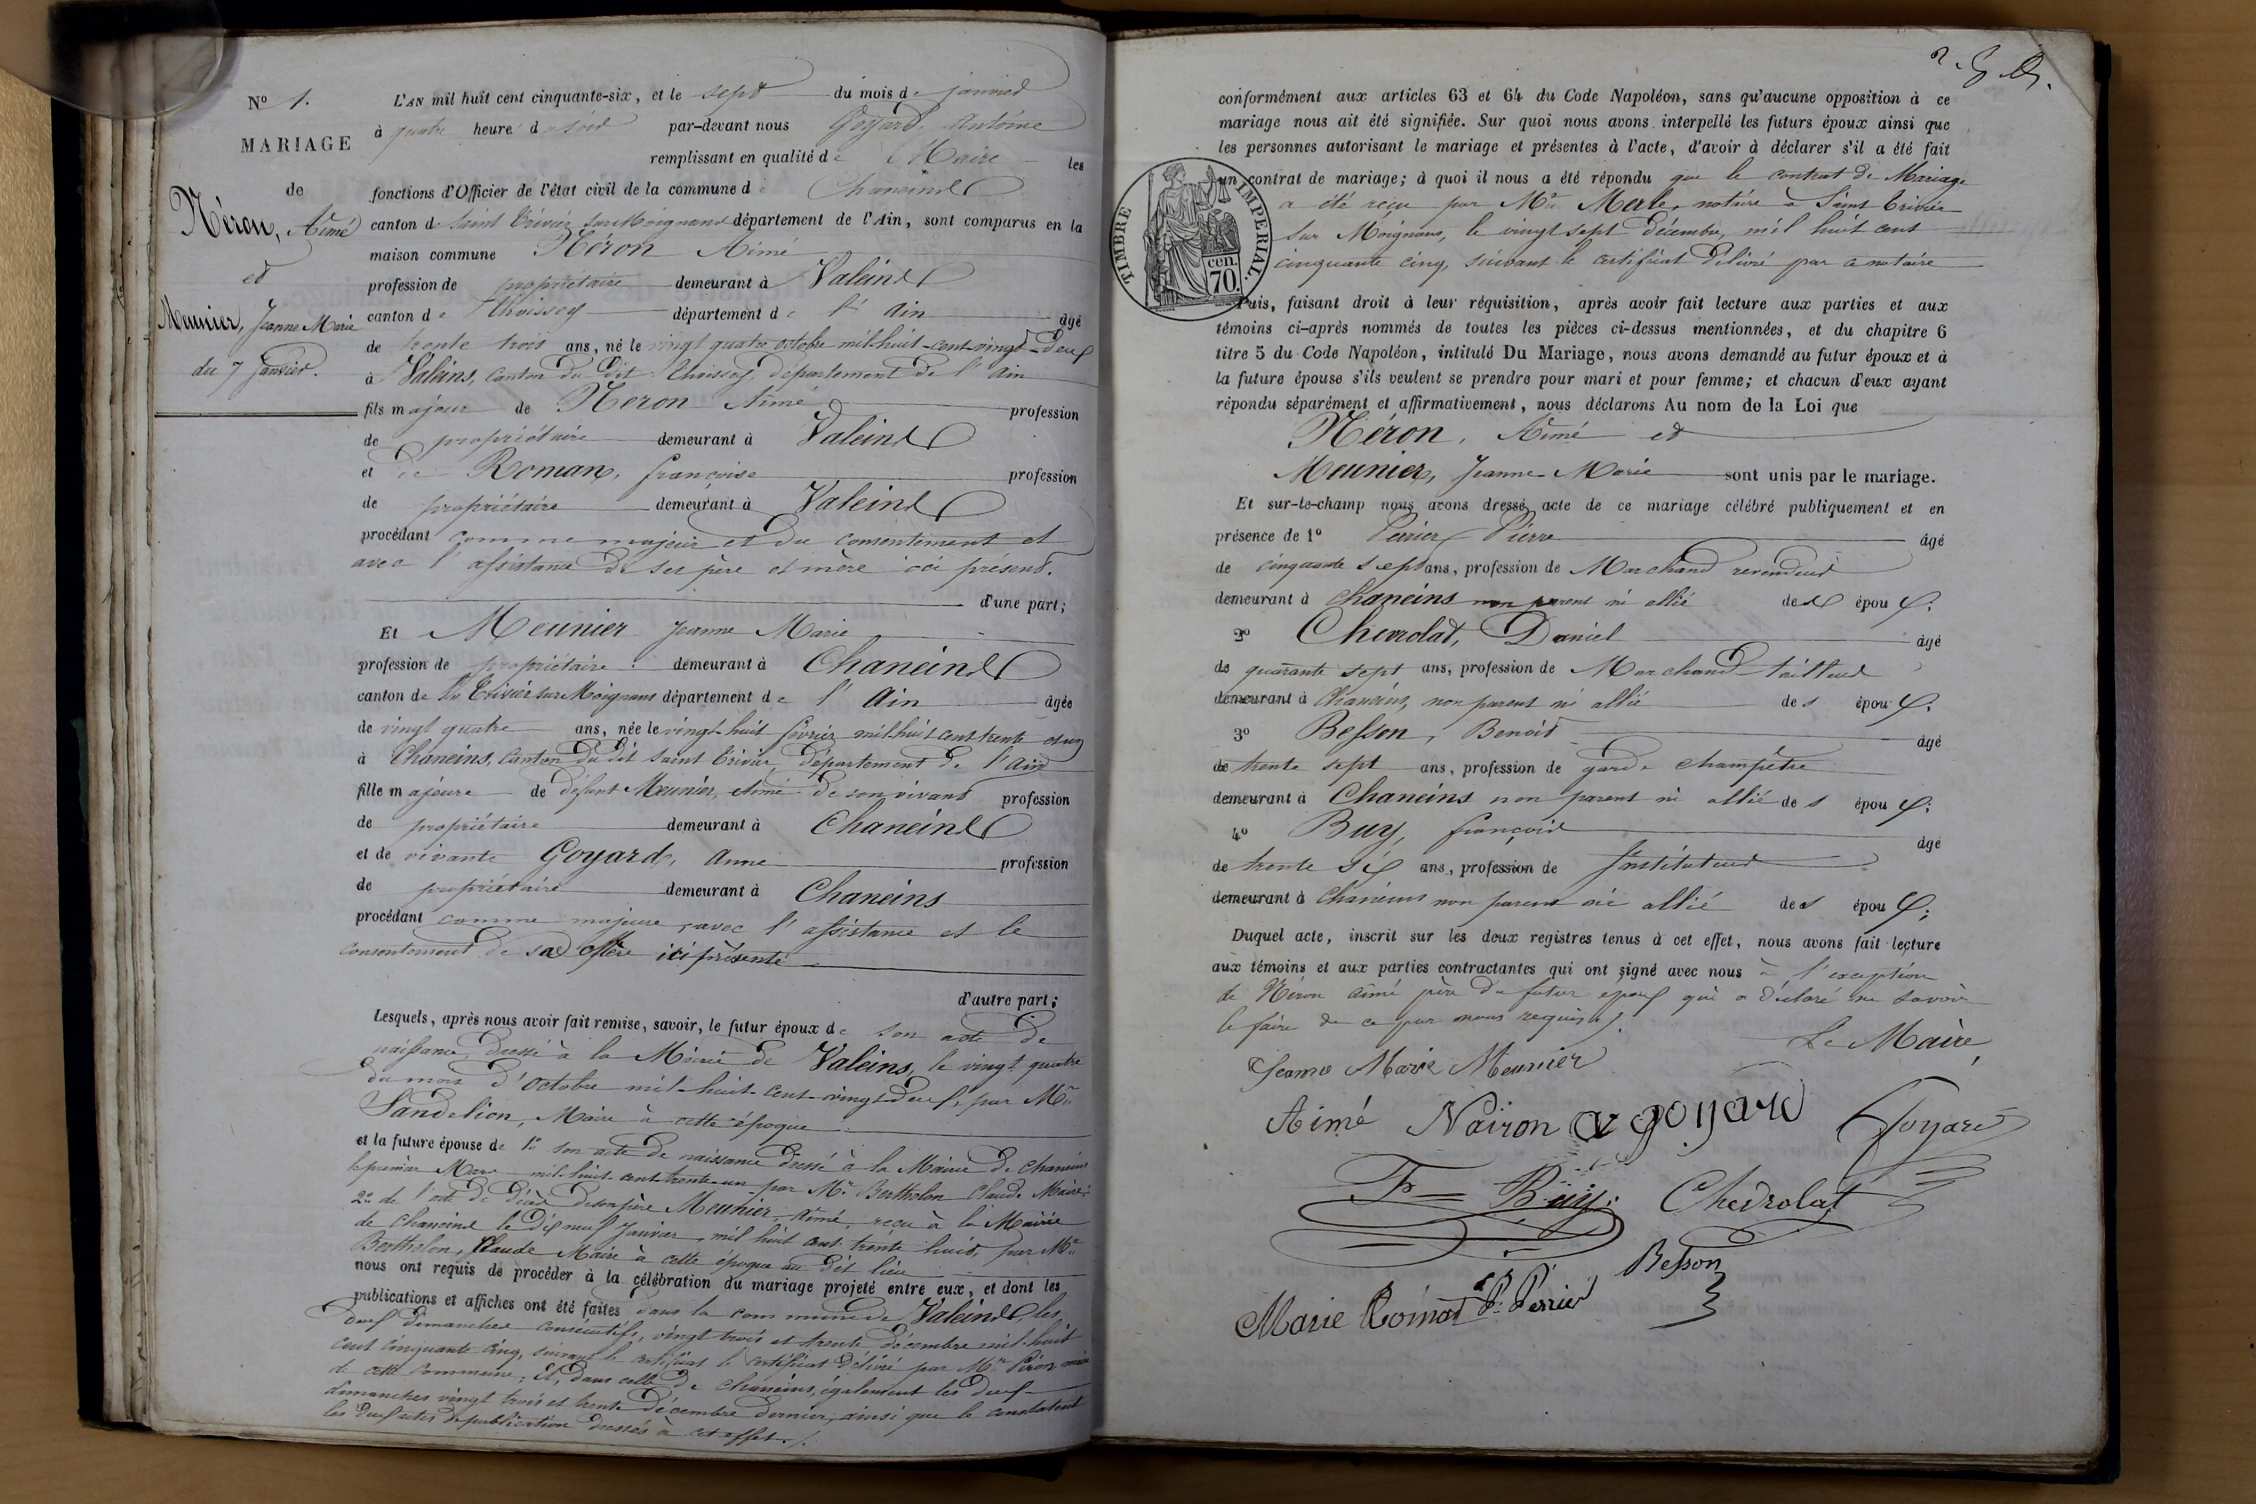 N° 1.
MARIAGE
de
Néron, Aimé
et
Meunier, Jeanne Marie
du 7 Janvier.
L'AN mil huit cent cinquante-six, et le sept du mois de janvier
à quatre heure du soir par-devant nous Goyard, Antoine
remplissant en qualité de Maire les
fonctions d'Officier de l'état civil de la commune de Chaneins
canton de Saint Trivier sur Moignans département de l'Ain, sont comparus en la
maison commune Néron Aimé
profession de propriétaire demeurant à Valeins
canton de Thoissey département de l'Ain âgé
de trente trois ans, né le vingt quatre octobre mil-huit-cent-vingt-deux
à Valeins, canton du dit Thoissey, département de l'Ain
fils majeur de Néron Aimé profession
de propriétaire demeurant à Valeins
et de Roman, françoise profession
de propriétaire demeurant à Valeins
procédant comme majeur et du consentement et
avec l'assistance de ses père et mère ici présens.
d'une part;
Et Meunier Jeanne Marie
profession de propriétaire demeurant à Chaneins
canton de St Trivier sur Moignans département de l'Ain âgée
de vingt quatre ans, née le vingt-huit février mil huit cent trente et un
à Chaneins, Canton du dit Saint Trivier, département de l'Ain
fille majeure de défunt Meunier, Aimé de son vivant profession
de propriétaire demeurant à Chaneins
et de vivante Goyard, Anne profession
de propriétaire demeurant à Chaneins
procédant comme majeure, avec l'assistance et le
consentement de sa Mère ici présente
d'autre part;
Lesquels, après nous avoir fait remise, savoir, le futur époux de son acte de
naissance dressé à la Mairie de Valeins, le vingt quatre
du mois d'Octobre mil-huit-cent-vingt-deux, par Mr
Sandelion, Maire à cette époque
et la future épouse de 1° son acte de naissance dressé à la Mairie de Chaneins
le premier Mars mil-huit-cent-trente-un par Mr Bertholon Claude Maire;
2° de l'acte de décès de son père Meunier Aimé, reçu à la Mairie
de Chaneins le dix neuf Janvier mil huit cent trente huit, par Mr
Bertholon, Claude Maire à cette époque au dit lieu
nous ont requis de procéder à la célébration du mariage projeté entre eux, et dont les
publications et affiches ont été faites dans la commune de Valeins, les
deux dimanches consécutifs, vingt trois et trente décembre mil-huit
cent cinquante cinq, suivant le certificat le certificat délivré par Mr maire
de cette commune; Et, dans celle de Chaneins, également les deux
dimanches vingt trois et trente décembre dernier, ainsi que le constatent
les deux actes de publication dressés à cet effet./.
conformément aux articles 63 et 64 du Code Napoléon, sans qu'aucune opposition à ce
mariage nous ait été signifiée. Sur quoi nous avons interpellé les futurs époux ainsi que
les personnes autorisant le mariage et présentes à l'acte, d'avoir à déclarer s'il a été fait
un contrat de mariage; à quoi il nous a été répondu que le contrat de Mariage
a été reçu par Me Merle, notaire à Saint Trivier
sur Moignans, le vingt sept décembre, mil huit cent
cinquante cinq, suivant le certificat délivré par ce notaire
TIMBRE IMPERIAL.
cen.
70.
Puis, faisant droit à leur réquisition, après avoir fait lecture aux parties et aux
témoins ci-après nommés de toutes les pièces ci-dessus mentionnées, et du chapitre 6
titre 5 du Code Napoléon, intitulé Du Mariage, nous avons demandé au futur époux et à
la future épouse s'ils veulent se prendre pour mari et pour femme; et chacun d'eux ayant
répondu séparément et affirmativement, nous déclarons Au nom de la Loi que
Néron, Aimé et
Meunier, Jeanne-Marie sont unis par le mariage.
Et sur-le-champ nous avons dressé acte de ce mariage célébré publiquement et en
présence de 1° Perrier Pierre âgé
de cinquante sept ans, profession de Marchand revendeur
demeurant à Chaneins non parent ni allié des époux.
2° Chevrolat, Daniel âgé
de quarante sept ans, profession de Marchand-tailleur
demeurant à Chaneins, non parent ni allié des époux.
3° Besson, Benoit âgé
de trente sept ans, profession de garde champêtre
demeurant à Chaneins non parent ni allié des époux;
4° Buy, françois âgé
de trente six ans, profession de Instituteur
demeurant à Chaneins non parent ni allié des époux;
Duquel acte, inscrit sur les deux registres tenus à cet effet, nous avons fait lecture
aux témoins et aux parties contractantes qui ont signé avec nous à l'exception
de Néron Aimé père du futur époux qui a déclaré ne savoir
le faire de ce par nous requis./.
Le Maire,
Jeanne Marie Meunier
Aimé Naìron a goyard Goyard
Fs Buy Chevrolat
Besson
Marie Romat P. Perrier